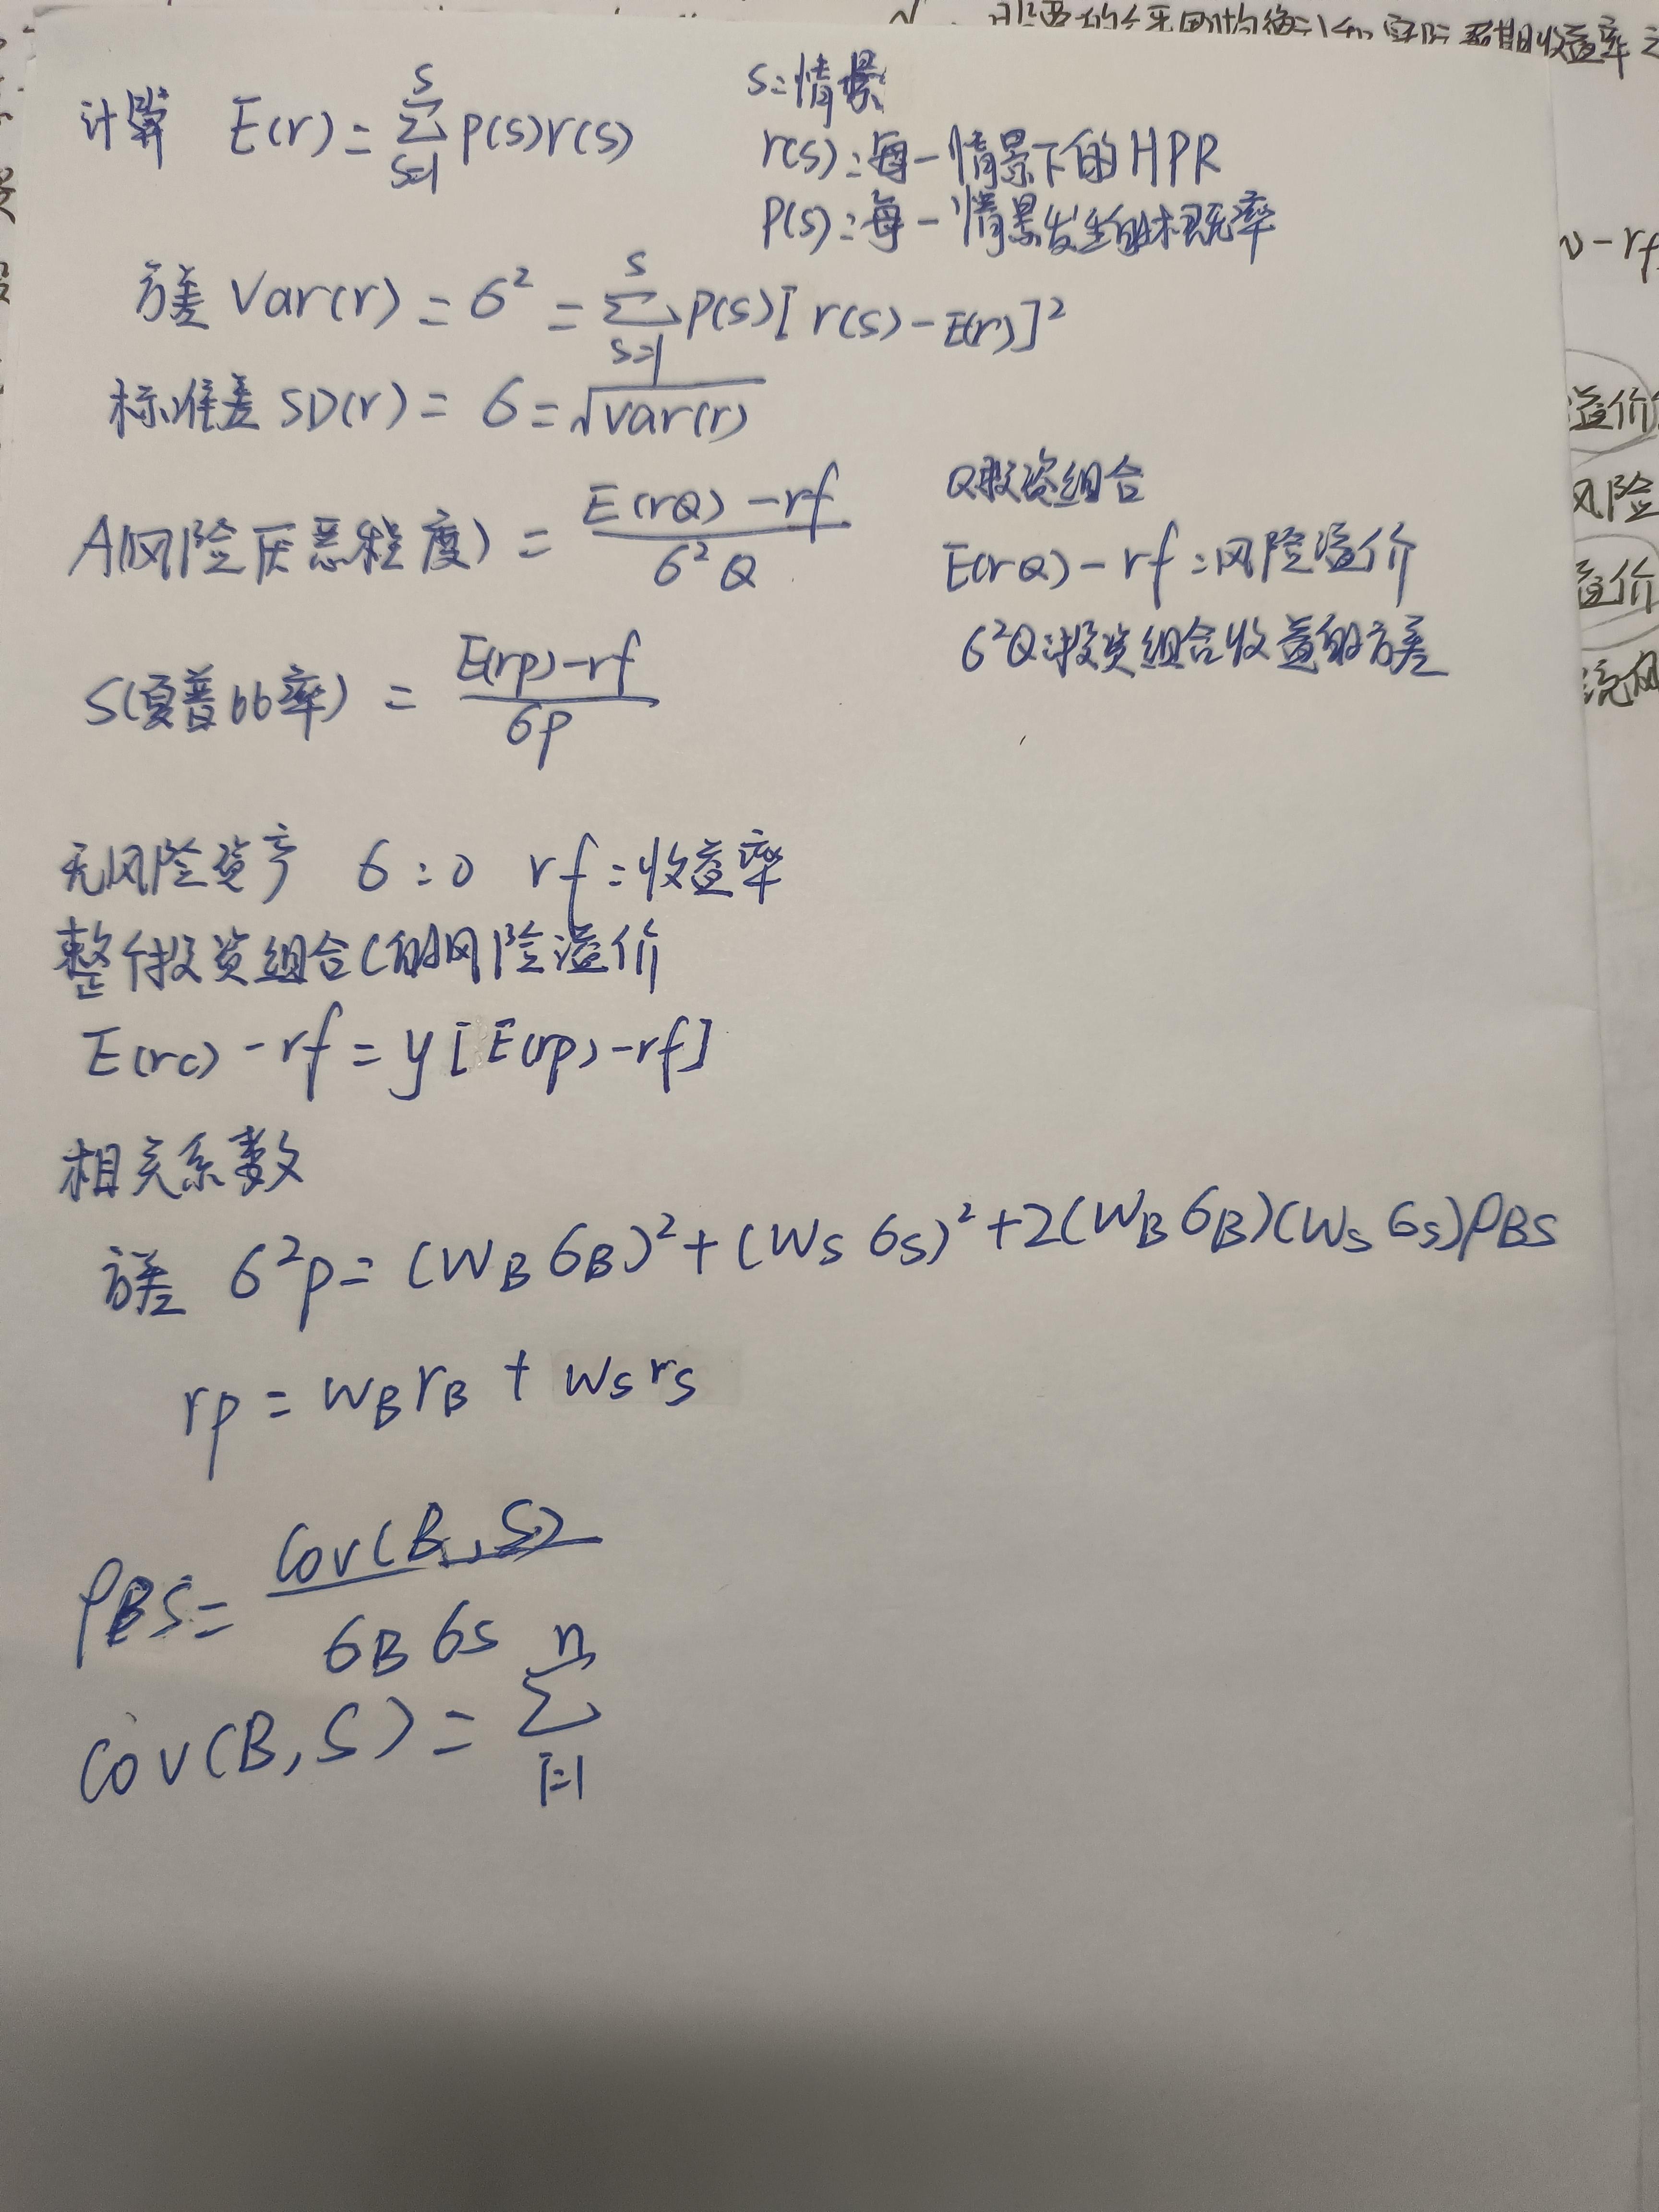 计算 E(r)=∑_{s=1}^{S} p(s)r(s)
S:情景
r(s):每一情景下的HPR
P(s):每一情景发生的概率
方差 Var(r)=6²=∑_{s=1}^{S} p(s)[r(s)-E(r)]²
标准差 SD(r)=6=√Var(r)
A(风险厌恶程度)=\frac{E(rQ)-rf}{6²Q}
Q投资组合
E(rQ)-rf:风险溢价
6²Q:投资组合收益的方差
S(夏普比率)=\frac{E(rp)-rf}{6p}
无风险资产 6:0 rf:收益率
整个投资组合C的风险溢价
E(rc)-rf=y[E(rp)-rf]
相关系数
方差 6²p=(WB6B)²+(WS6S)²+2(WB6B)(WS6S)ρBS
rp=WBrB+WSrS
ρBS=\frac{Cov(B,S)}{6B6S}
Cov(B,S)=∑_{i=1}^{n}
-rf
溢价
风险
溢价